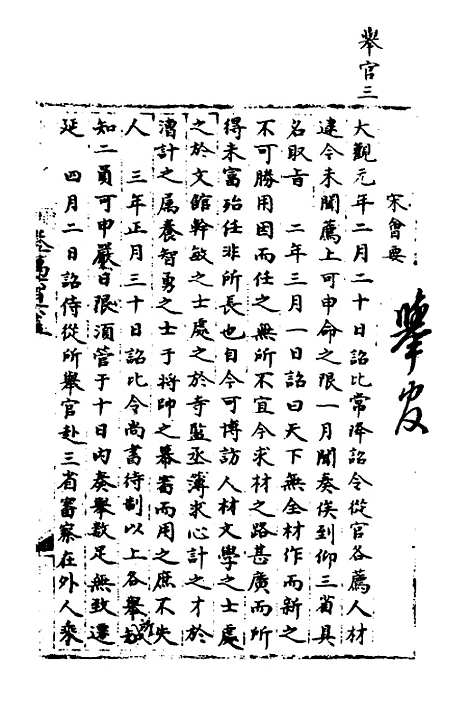 舉官三
宋會要
舉官
大觀元年二月二十日詔比常降詔令從官各薦人材
逮今未聞薦上可申命之限一月聞奏俟到仰三省具
名取旨　二年三月一日詔曰天下無全材作而新之
不可勝用因而任之無所不宜今求材之路甚廣而所
得未富殆任非所長也自今可博訪人材文學之士處
之於文館幹敏之士處之於寺監丞簿求心計之才於
漕計之屬養智勇之士于將帥之幕審而用之庶不失
人　三年正月三十日詔比令尚書待制以上各舉所
知二員可申嚴日限須管于十日內奏舉數足無致遷
延　四月二日詔侍從所舉官赴三省審察在外人乘